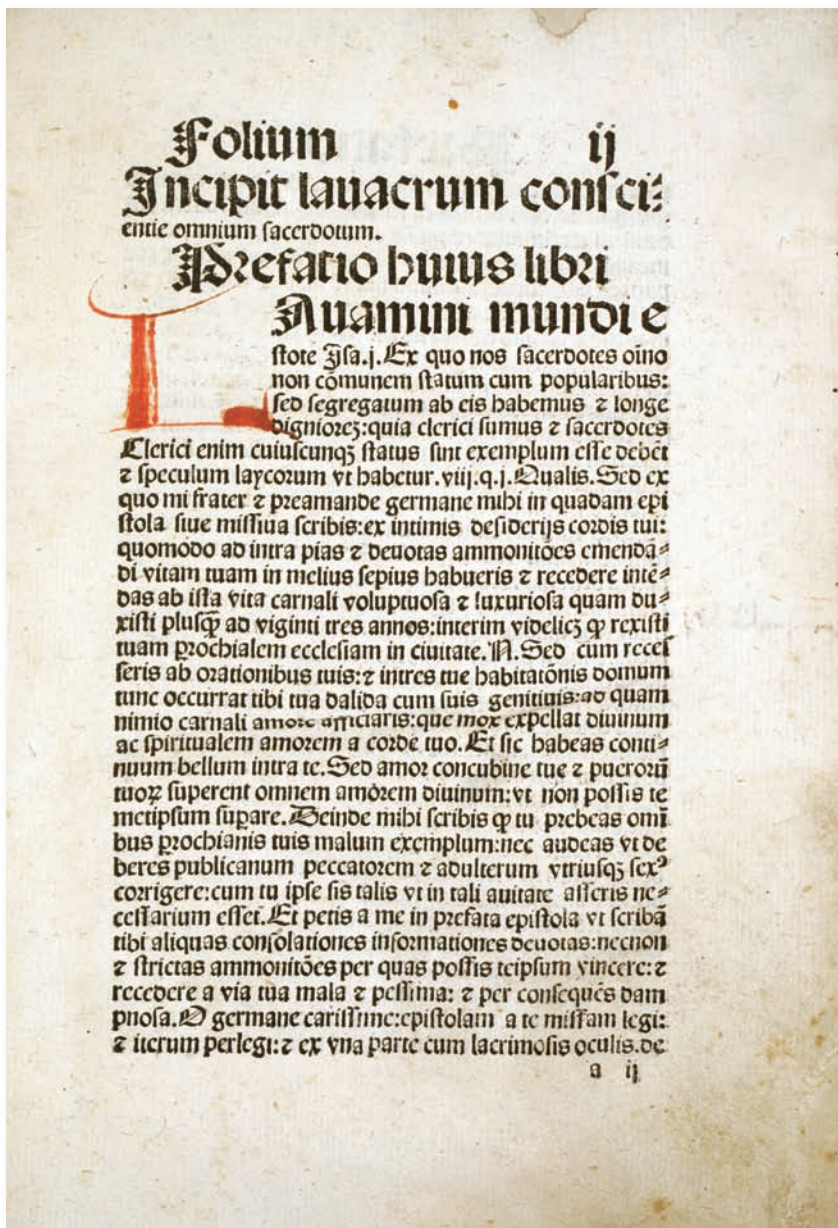 Folium ij
Incipit lauacrum consci⸗
entie omnium sacerdotum.
Prefatio huius libri
LAuamini mundi e
stote Jsa.j. Ex quo nos sacerdotes oīno
non cōmunem statum cum popularibus:
sed segregatum ab eis habemus ⁊ longe
digniorez: quia clerici sumus ⁊ sacerdotes
Clerici enim cuiuscunqꝫ status sint exemplum esse debēt
⁊ speculum laycorum vt habetur. viij. q. j. Qualis. Sed ex
quo mi frater ⁊ preamande germane mihi in quadam epi
stola siue missiua scribis: ex intimis desiderijs cordis tui:
quomodo ad intra pias ⁊ deuotas ammonitōes emendā⸗
di vitam tuam in melius sepius habueris ⁊ recedere intē⸗
das ab ista vita carnali voluptuosa ⁊ luxuriosa quam du⸗
xisti plusqꝫ ad viginti tres annos: interim videlicꝫ ꝙ rexisti
tuam ꝑrochialem ecclesiam in ciuitate. N. Sed cum reces
seris ab orationibus tuis: ⁊ intres tue habitatōnis domum
tunc occurrat tibi tua dalida cum suis genitiuis: ad quam
nimio carnali amore afficiaris: que mox expellat diuinum
ac spiritualem amorem a corde tuo. Et sic habeas conti⸗
nuum bellum intra te. Sed amor concubine tue ⁊ puerorū
tuoꝝ superent omnem amorem diuinum: vt non possis te
metipsum suꝑare. Deinde mihi scribis ꝙ tu prebeas omī
bus ꝑrochianis tuis malum exemplum: nec audeas vt de
beres publicanum peccatorem ⁊ adulterum vtriusqꝫ sexꝰ
corrigere: cum tu ipse sis talis vt in tali auitate asseris ne⸗
cessarium esset. Et petis a me in prefata epistola vt scribā
tibi aliquas consolationes informationes deuotas: necnon
⁊ strictas ammonitōes per quas possis teipsum vincere: ⁊
recedere a via tua mala ⁊ pessima: ⁊ per consequēs dam
pnosa. O germane carissime: epistolam a te missam legi:
⁊ iterum perlegi: ⁊ ex vna parte cum lacrimosis oculis. de
a ij